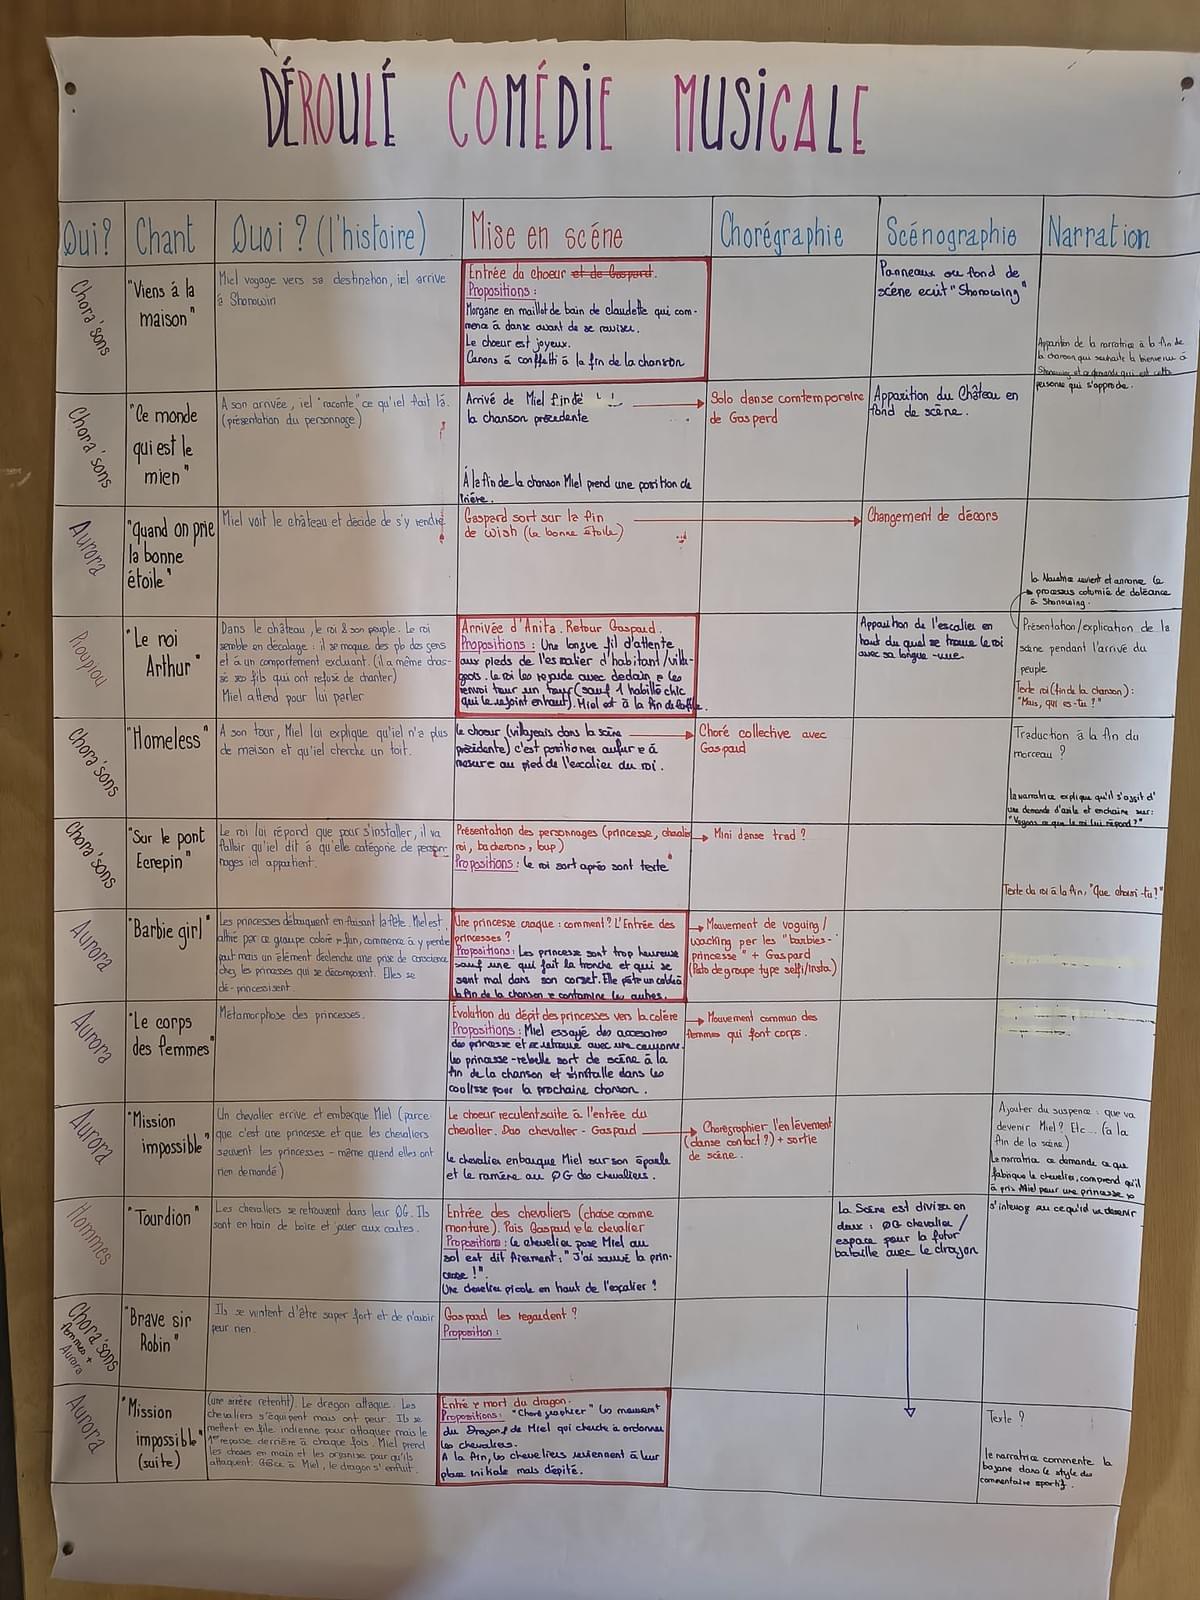 DÉROULÉ COMÉDIE MUSICALE
Qui?
Chant
Quoi ? (l'histoire)
Mise en scéne
Chorégraphie
Scénographie
Narration
Chora'sons
"Viens à la
maison"
Miel voyage vers sa destination, iel arrive
à Shonowin
Entrée du choeur et de Gaspard.
Propositions :
Morgane en maillot de bain de claudette qui com-
mence à danse avant de se raviser.
Le choeur est joyeux.
Canons à confetti à la fin de la chanson
Panneaux ou fond de
scéne ecrit "Shonowing"
Apparition de la narratrice à la fin de
la chanson qui souhaite la bienvenue à
Shonowing et a demande qui est cette
personne qui s'approche.
Chora'sons
"Ce monde
qui est le
mien"
A son arrivée, iel "raconte" ce qu'iel fait là.
(présentation du personnage)
Arrivé de Miel fin de
la chanson précedente
À la fin de la chanson Miel prend une position de
Prière.
Solo danse comtemporaine
de Gaspard
Apparition du Château en
fond de scène.
Aurora
"quand on prie
la bonne
étoile"
Miel voit le château et décide de s'y rendre
Gaspard sort sur la fin
de wish (la bonne étoile)
Changement de décors
la Narratrice revient et annonce le
processus de doléance
à Shonowing.
Pioupiou
"Le roi
Arthur"
Dans le château, le roi & son peuple. Le roi
semble en décalage : il se moque des pb des gens
et à un comportement excluant. (il a même chas-
sé ses fils qui ont refusé de chanter)
Miel attend pour lui parler
Arrivée d'Anita. Retour Gaspard.
Propositions : Une longue fil d'attente
aux pieds de l'escalier d'habitant/villa-
geois. Le roi les regade avec dedain e les
renvoi tour un tour (sauf 1 habillé chic
qui le rejoint en haut). Miel est à la fin de la file.
Apparition de l'escalier en
haut du quel se trouve le roi
avec sa longue -vue.
Présentation/explication de la
scène pendant l'arrivé du
peuple
Texte roi (fin de la chanson) :
"Mais, qui es-tu ?"
Chora'sons
"Homeless"
A son tour, Miel lui explique qu'iel n'a plus
de maison et qu'iel cherche un toit.
le choeur (villageois dans la scène
précidente) c'est positioner au fur e à
mesure au pied de l'escalier du roi.
Choré collective avec
Gaspard
Traduction à la fin du
morceau ?
la narratrice explique qu'il s'agit d'
une demande d'asile et enchaine sur:
"Voyons ce que le roi lui répond ?"
Chora'sons
"Sur le pont
Ecrepin"
Le roi lui répond que pour s'installer, il va
falloir qu'iel dit à qu'elle catégorie de person-
nages iel appartient.
Présentation des personnages (princesse, chevalier
roi, bucherons, loup)
Propositions : le roi sort après sont texte
Mini danse trad ?
Texte du roi à la fin, "Que choisi-tu?"
Aurora
"Barbie girl"
Les princesses débarquent en faisant la fête. Miel est
attiré par ce groupe coloré e fun, commence à y prendre
gout mais un élément déclenche une prise de conscience
chez les princesses qui se décomposent. Elles se
dé-princessisent.
Une princesse craque : comment? L'Entrée des
princesses ?
Propositions : Les princesse sont trop heureuse
sauf une qui fait la tronche et qui se
sent mal dans son corset. Elle pète un cable à
la fin de la chanson e contamine les autres.
Mouvement de voguing/
waching per les "barbies-
princesse" + Gaspard
(Pato de groupe type selfi/insta.)
Aurora
"Le corps
des femmes"
Métamorphose des princesses.
Évolution du dépit des princesses vers la colère
Propositions : Miel essayé des accesoires
des princesse et se retrouve avec une couronne.
Les princesse-rebelle sort de scène à la
fin de la chanson et s'installe dans les
coulisse pour la prochaine chanson.
Mouvement commun des
femmes qui font corps.
Aurora
"Mission
impossible"
Un chevalier arrive et embarque Miel (parce
que c'est une princesse et que les chevaliers
sauvent les princesses - même quand elles ont
rien demandé)
Le choeur reculent suite à l'entrée du
chevalier. Duo chevalier - Gaspard
le chevalier enbarque Miel sur son épaule
et le ramène au QG des chevaliers.
Chorégraphier l'enlèvement
(danse contact ?) + sortie
de scène.
Ajouter du suspence : que va
devenir Miel? Etc... (à la
fin de la scène)
La narratrice ce demande ce que
fabrique le chevalier, comprend qu'il
à pris Miel pour une princesse
s'interroge
Hommes
"Tourdion"
Les chevaliers se retrouvent dans leur QG. Ils
sont en train de boire et jouer aux cartes.
Entrée des chevaliers (chaise comme
monture). Puis Gaspard e le chevalier
Propositions : le chevelier pose Miel au
sol est dit fièrement : "J'ai sauvé la prin-
cesse !".
Une chevelier picole en haut de l'escalier !
La Scène est divisé en
deux : QG chevalier /
espace pour la futur
bataille avec le dragon
Chora'sons
femmes +
Aurora
"Brave sir
Robin"
Ils se vantent d'être super fort et de n'avoir
peur rien.
Gaspard les regardent ?
Proposition :
Aurora
"Mission
impossible"
(suite)
(une sirène retentit). Le dragon attaque. Les
chevaliers s'équipent mais ont peur. Ils se
mettent en file indienne pour attaquer mais le
1er repasse derrière à chaque fois. Miel prend
les choses en main et les organise pour qu'ils
attaquent. Grâce à Miel, le dragon s'enfuit.
Entré e mort du dragon.
Propositions : "Chorégraphier" les mouvement
du Dragon, de Miel qui cherche à ordonner
les chevaliers.
A la fin, les cheveliers reviennent à leur
place initiale mais dépité.
Texte ?
le narratrice commente la
bagare dans le style du
commentaire sportif.